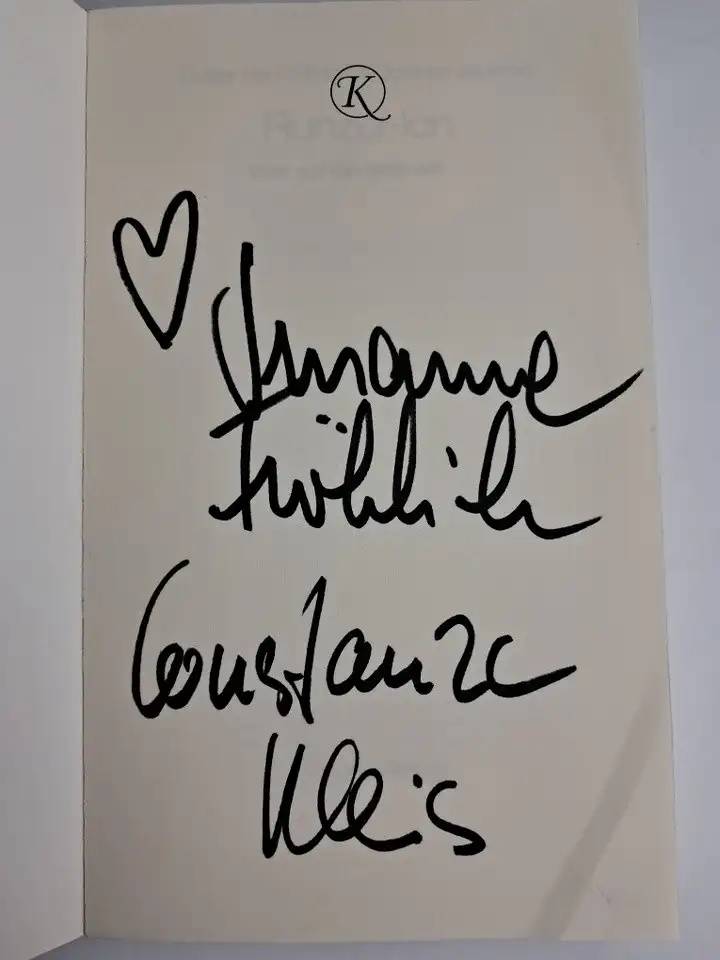 K
Susanne
Fröhlich
Constanze
Kleis